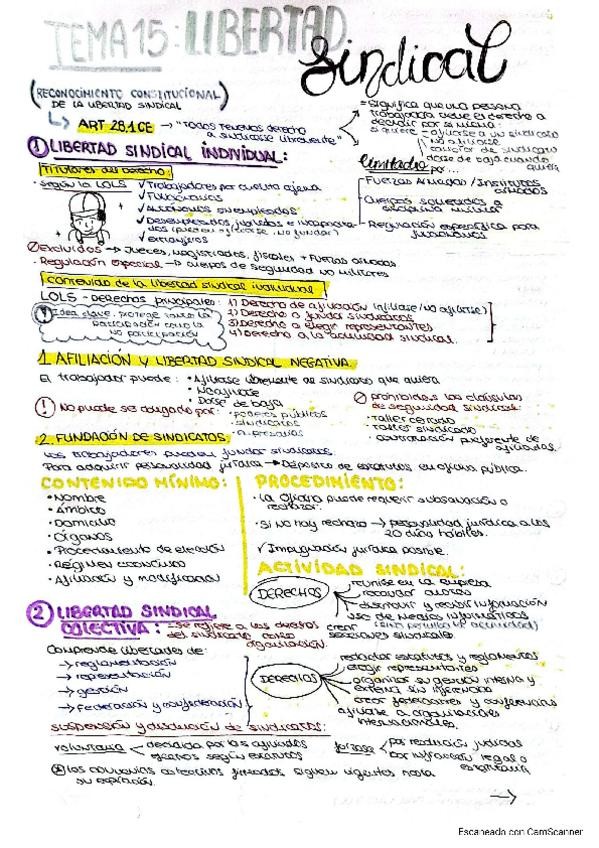 TEMA 15: LIBERTAD
Sindical
(RECONOCIMIENTO CONSTITUCIONAL)
DE LA LIBERTAD SINDICAL
ART 28.1 CE → "Todos tenemos derecho
a sindicarse libremente"
= Significa que una persona
trabajadora tiene el derecho a
decidir por si misma:
si quiere - afiliarse a un sindicato
- no afiliarse
- cambiar de sindicato
- darse de baja cuando
quiera
1 LIBERTAD SINDICAL INDIVIDUAL:
Titulares del derecho:
· Según la LOLS
✓ Trabajadores por cuenta ajena
✓ Funcionarios
✓ Autónomos sin empleados
✓ Desempleados, jubilados e incapacita-
dos (pueden afiliarse, no fundar)
✓ Extranjeros
Limitado
por...
Fuerzas Armadas / Institutos
armados
Cuerpos sometidos a
disciplina militar
- Regulación específica para
funcionarios
Excluidos → Jueces, magistrados, fiscales + Fuerzas armadas
· Regulación especial → cuerpos de seguridad no militares
Contenido de la libertad sindical individual
LOLS - Derechos principales:
1) Derecho de afiliación (afiliarse/no afiliarse)
2) Derecho a fundar sindicatos
3) Derecho a elegir representantes
4) Derecho a la actividad sindical
Idea clave: protege tanto la
participación como la
no participación
1. AFILIACIÓN Y LIBERTAD SINDICAL NEGATIVA
El trabajador puede:
· Afiliarse libremente al sindicato que quiera
· No afiliarse
· Darse de baja
! No puede ser obligado por:
· poderes públicos
· sindicatos
· empresarios
prohibidas las cláusulas
de seguridad sindical:
· Taller cerrado
· Taller sindicado
· contratación preferente de
afiliados
2. FUNDACIÓN DE SINDICATOS
Los trabajadores pueden fundar sindicatos.
Para adquirir personalidad jurídica → Depósito de estatutos en oficina pública.
CONTENIDO MÍNIMO:
· Nombre
· Ámbito
· Domicilio
· Órganos
· Procedimiento de elección
· Régimen económico
· Afiliación y modificación
PROCEDIMIENTO:
· La oficina puede requerir subsanación o
rechazar.
· Si no hay rechazo → personalidad jurídica a los
20 días hábiles.
✓ Impugnación jurídica posible.
ACTIVIDAD SINDICAL:
DERECHOS
reunirse en la empresa
recaudar cuotas
distribuir y recibir información
uso de medios informáticos
(sin perturbar la actividad)
crear
secciones sindicales
2 LIBERTAD SINDICAL
COLECTIVA:
- Se refiere a los derechos
del sindicato como
organización
Comprende libertades de:
→ reglamentación
→ representación
→ gestión
→ federación y confederación
DERECHOS
redactar estatutos y reglamentos
elegir representantes
organizar su gestión interna y
externa sin injerencia
crear federaciones y confederaciones
afiliarse a organizaciones
internacionales.
Suspensión y disolución de sindicatos:
voluntaria
decidida por los afiliados
órganos según estatutos
forzosa
por resolución judicial
por infracción legal o
estatutaria
Los convenios colectivos firmados siguen vigentes hasta
su expiración.
→
Escaneado con CamScanner